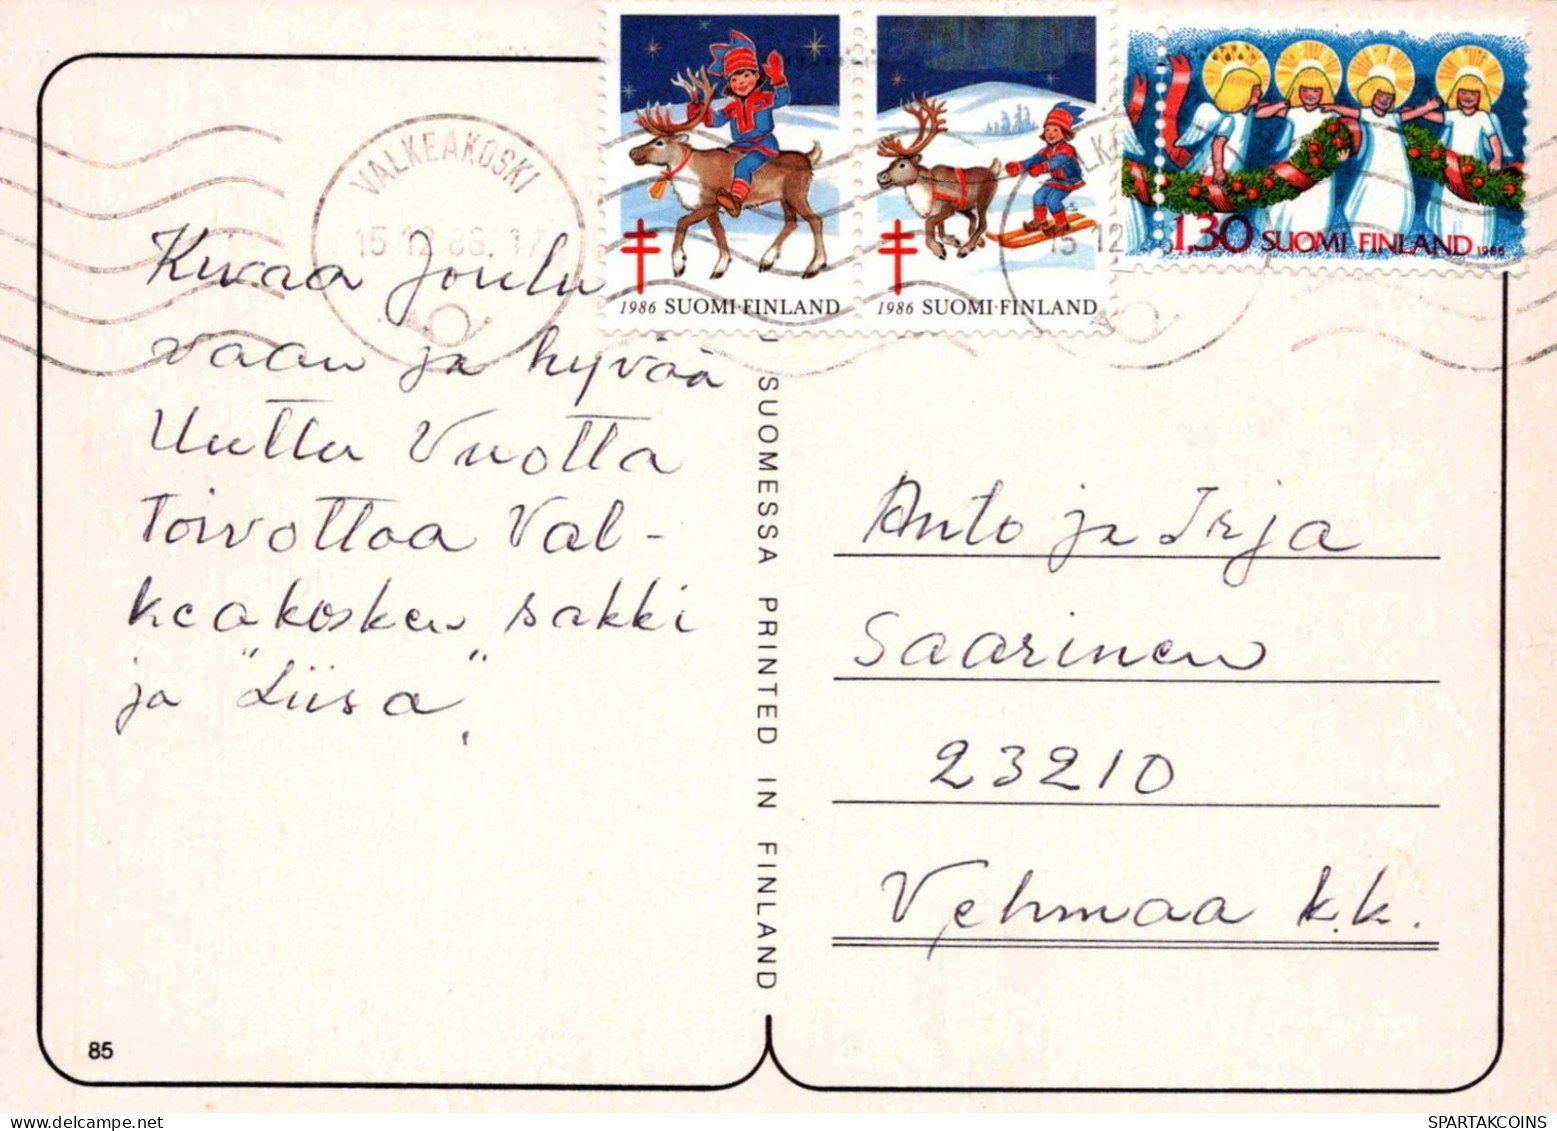 VALKEAKOSKI
15.12.86.17
1986 SUOMI·FINLAND
1986 SUOMI·FINLAND
1.30 SUOMI FINLAND 1986
15.12
Kivaa Joulu
vaan ja hyvää
Uutta Vuotta
toivottaa Val-
keakosken sakki
ja "Liisa"
SUOMESSA PRINTED IN FINLAND
Anto ja Irja
Saarinen
23210
Vehmaa k.k.
85
SPARTAKCOINS